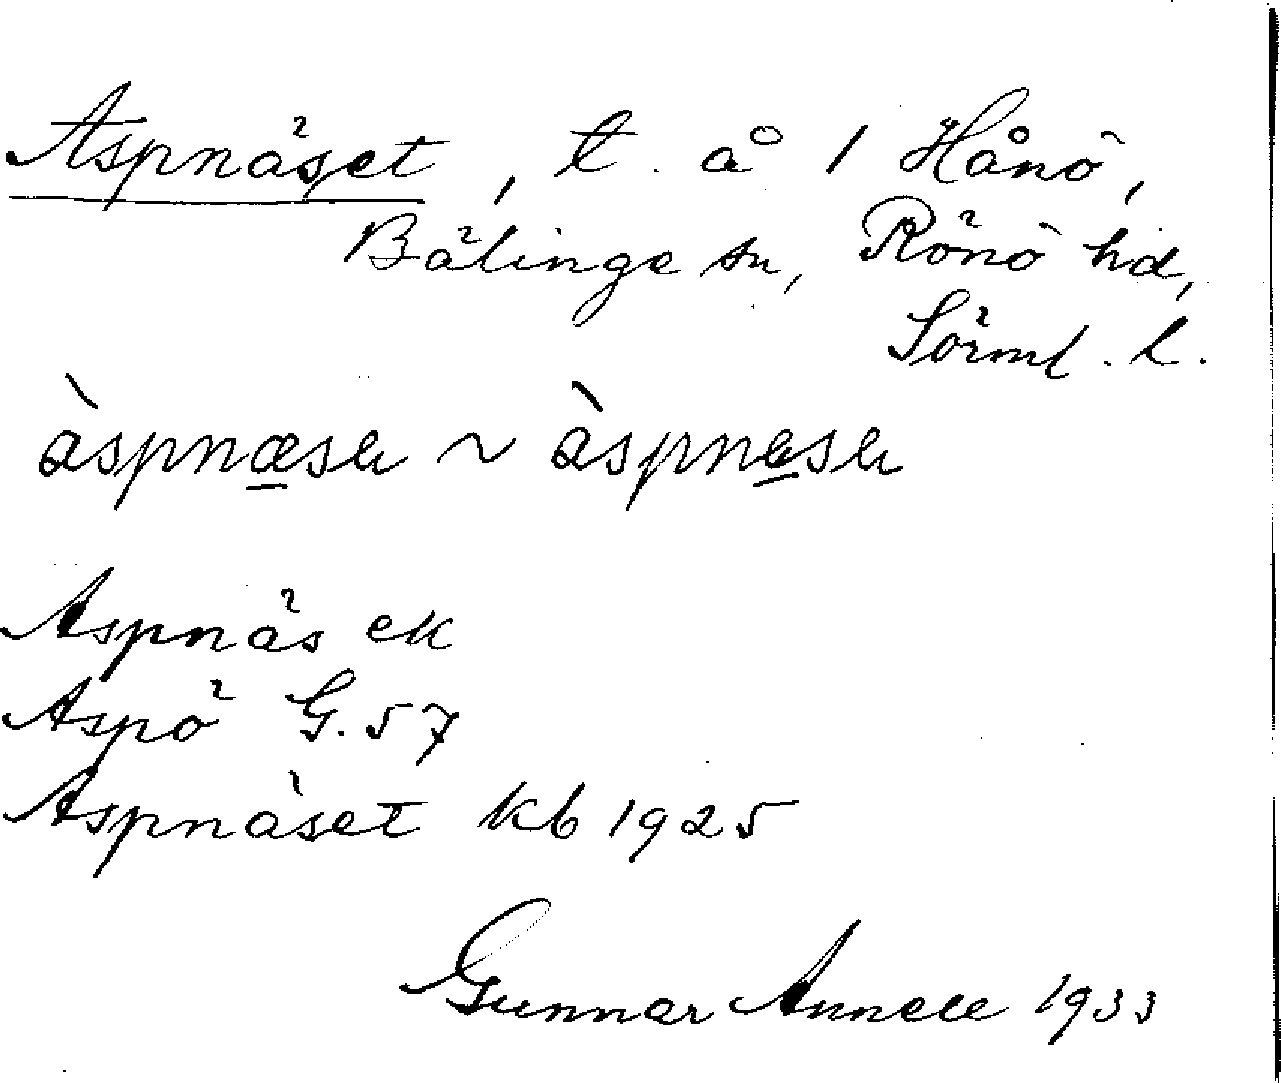 Aspnäset, t. å 1 Hånö,
Bälinge sn, Rönö hd,
Sörml. l.
àspnæsɛ ~ àspnesɛ
Aspnäs ek
Aspö G. 57
Aspnäset kb 1925
Gunnar Annell 1933